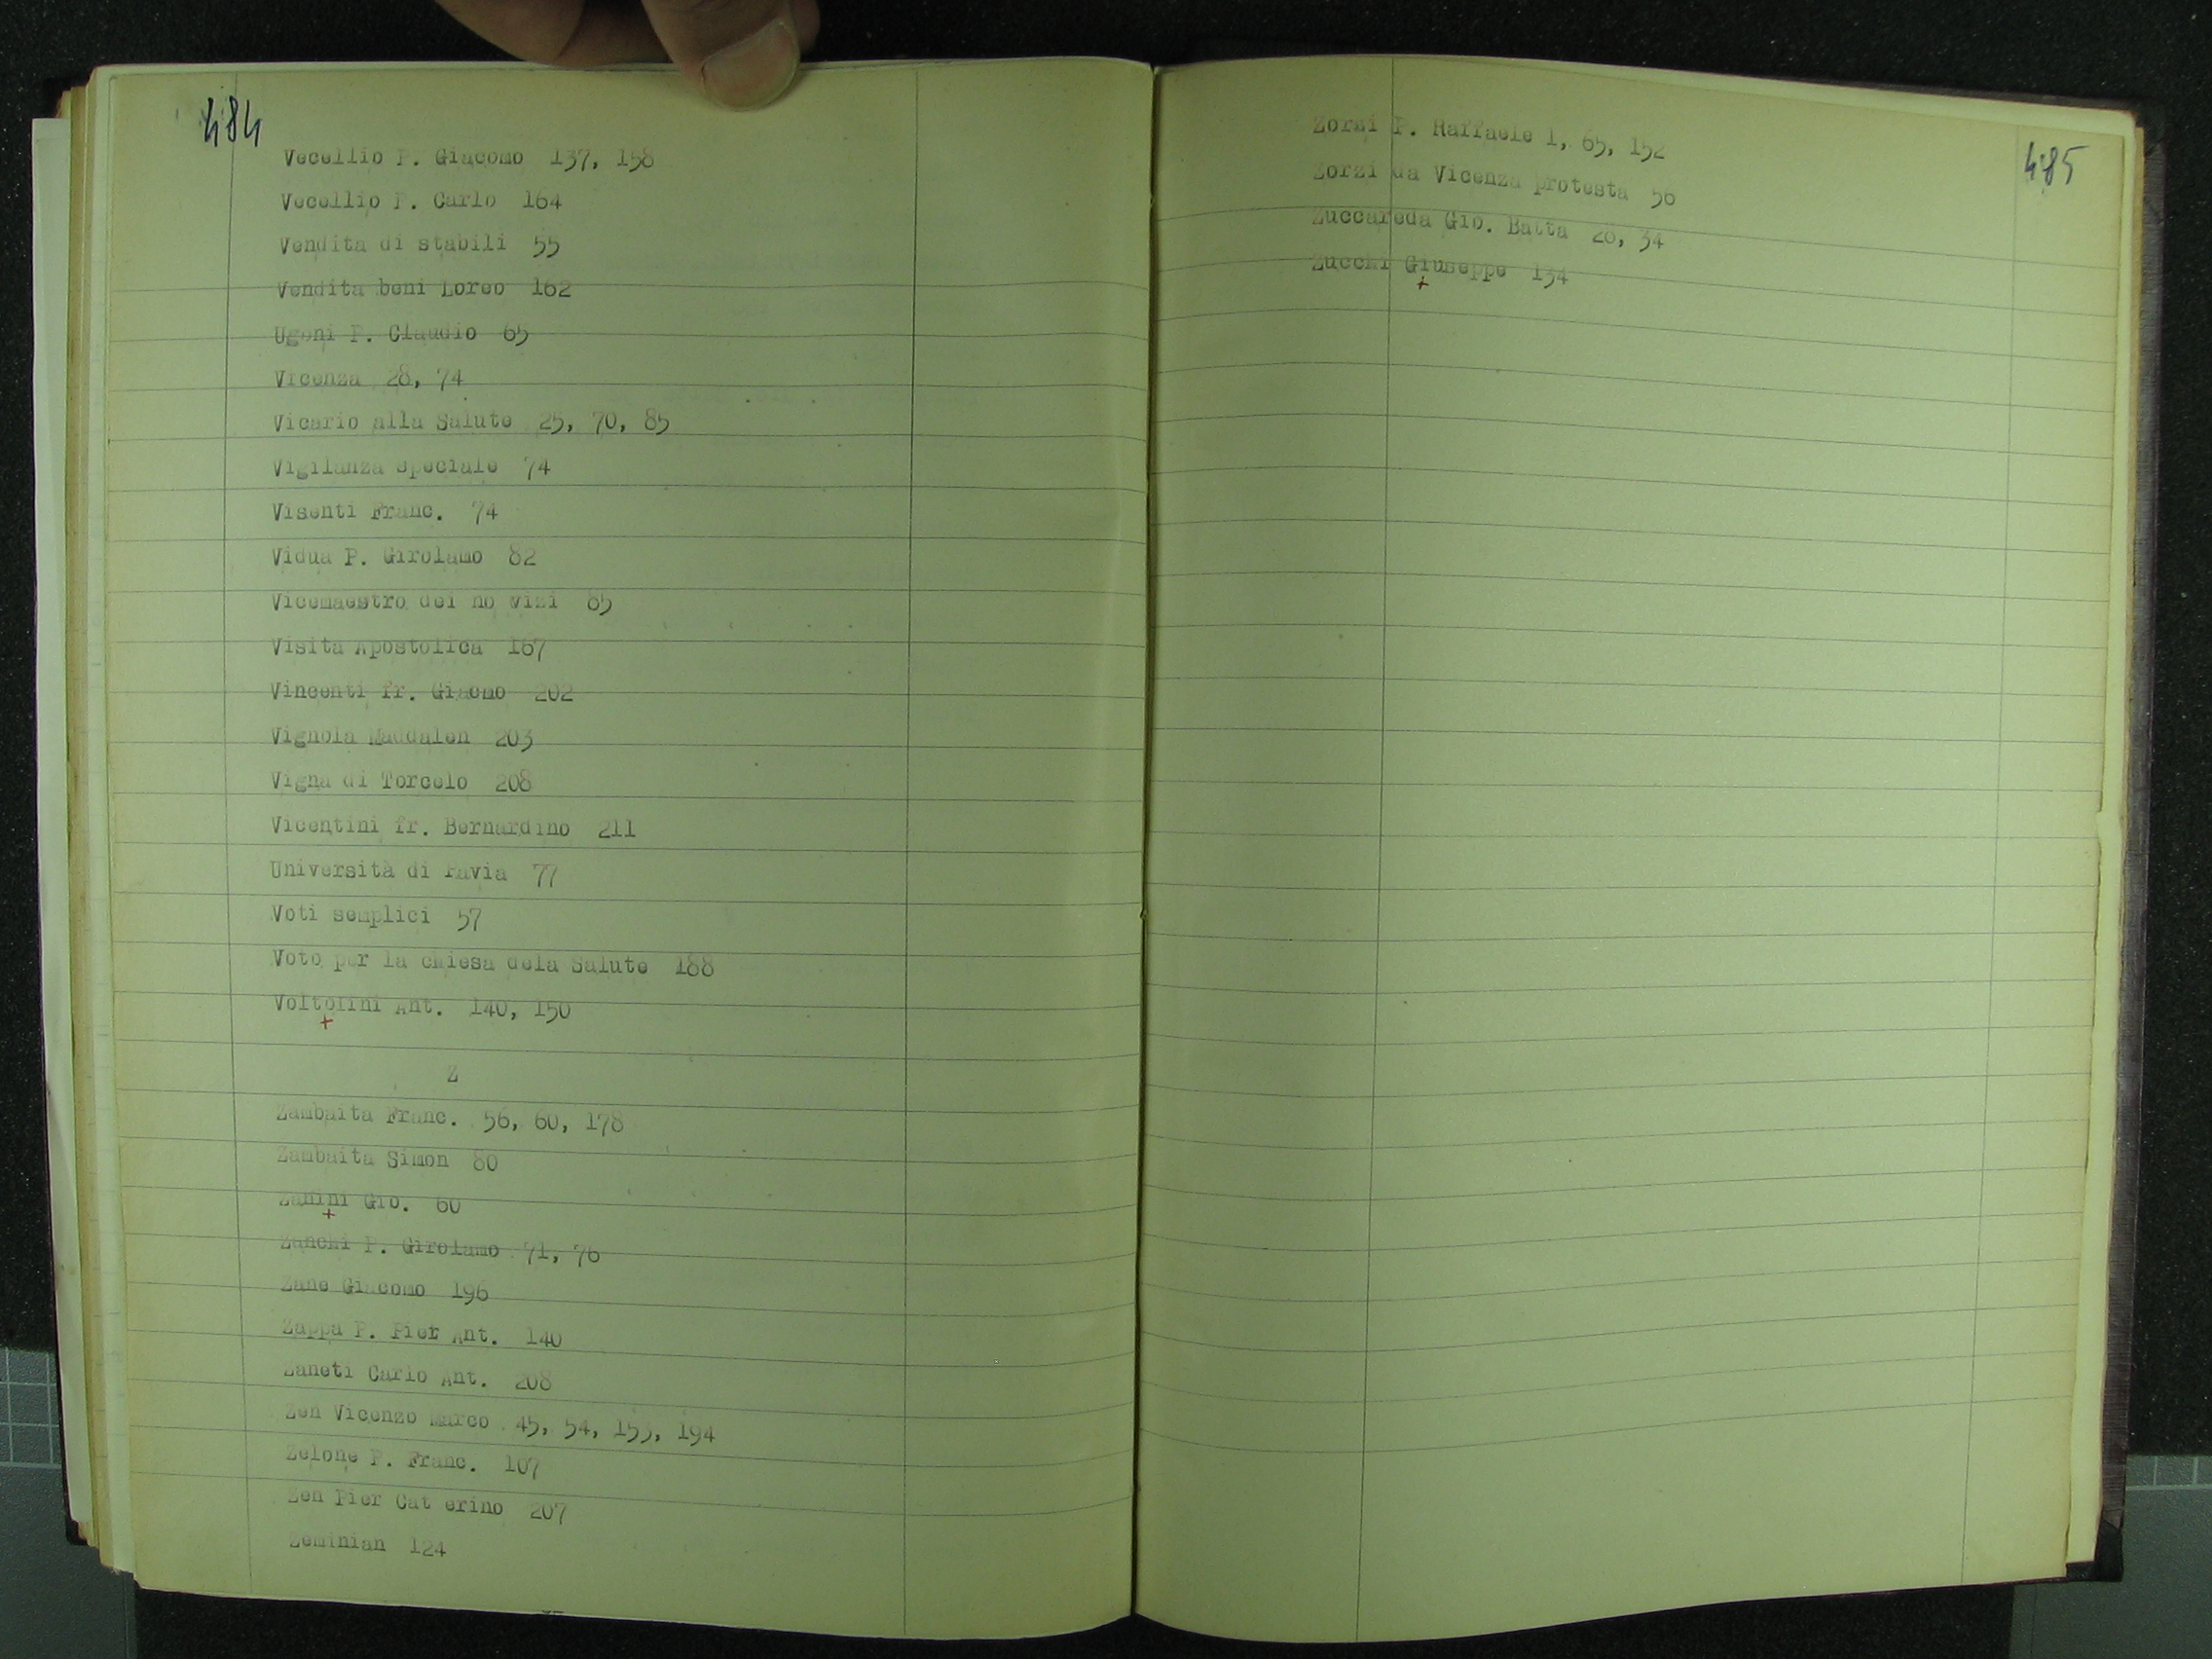 484
Vecellio P. Giacomo 137, 158
Vecellio P. Carlo 164
Vendita di stabili 55
Vendita beni Loreo 162
Ugoni P. Claudio 65
Vicenza 28, 74
Vicario alla Salute 25, 70, 85
Vigilanza speciale 74
Visenti Franc. 74
Vidua P. Girolamo 82
Vicemaestro dei no vizi 85
Visita Apostolica 167
Vincenti fr. Giacmo 202
Vignola Maddalen 203
Vigna di Torcelo 208
Vicentini fr. Bernardino 211
Università di Pavia 77
Voti semplici 57
Voto per la chiesa dela Salute 188
Voltolini Ant. 140, 150
+
Z
Zambaita Franc. 56, 60, 178
Zambaita Simon 80
Zanini Gio. 60
+
Zanchi P. Girolamo 71, 76
Zane Giacomo 196
Zappa P. Pier Ant. 140
Zaneti Carlo Ant. 208
Zen Vicenzo Marco 45, 54, 153, 194
Zelone P. Franc. 107
Zen Pier Cat erino 207
Zeminian 124
485
Zorzi P. Raffaele 1, 65, 152
Zorzi da Vicenza protesta 56
Zuccareda Gio. Batta 28, 34
Zucchi Giuseppe 134
+